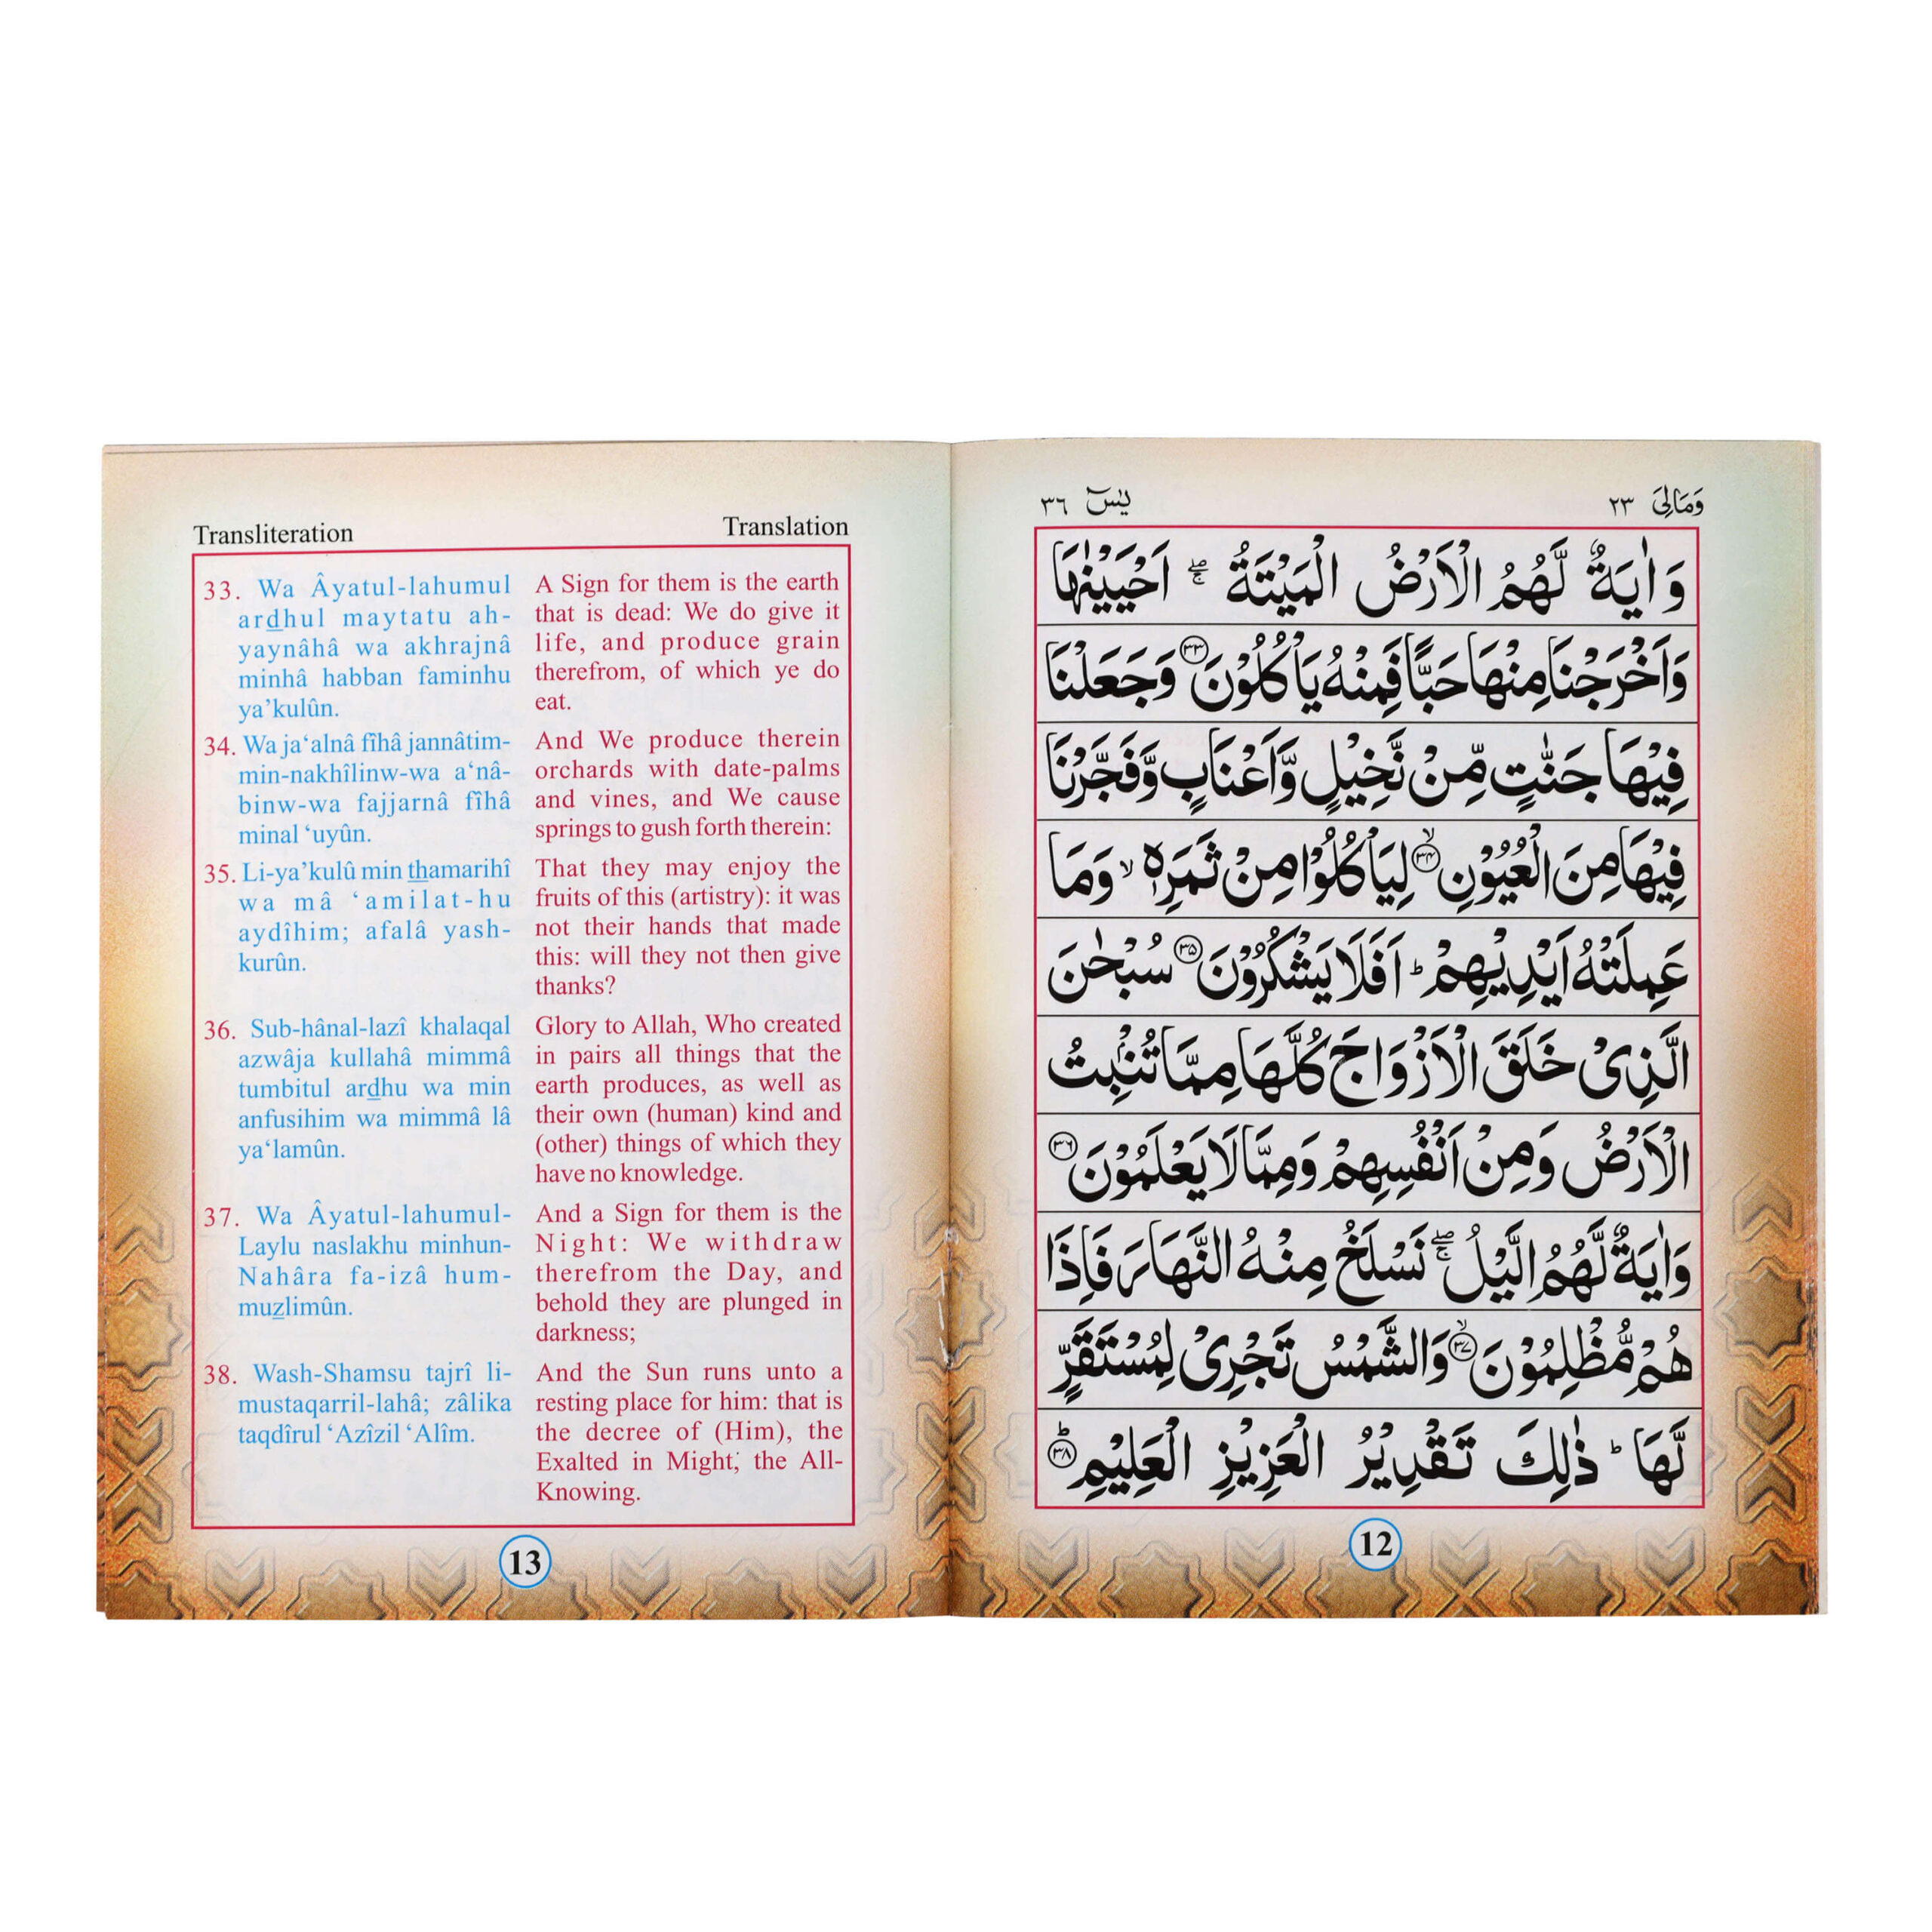 وَمَالِىَ ٢٣
يٰسٓ ٣٦
وَاٰيَةٌ لَّهُمُ الْاَرْضُ الْمَيْتَةُ ۚۖ اَحْيَيْنٰهَا
وَاَخْرَجْنَا مِنْهَا حَبًّا فَمِنْهُ يَاْكُلُوْنَ ﴿٣٣﴾ وَجَعَلْنَا
فِيْهَا جَنّٰتٍ مِّنْ نَّخِيْلٍ وَّاَعْنَابٍ وَّفَجَّرْنَا
فِيْهَا مِنَ الْعُيُوْنِ ﴿٣٤﴾ۙ لِيَاْكُلُوْا مِنْ ثَمَرِهٖ ۙ وَمَا
عَمِلَتْهُ اَيْدِيْهِمْ ؕ اَفَلَا يَشْكُرُوْنَ ﴿٣٥﴾ سُبْحٰنَ
الَّذِىْ خَلَقَ الْاَزْوَاجَ كُلَّهَا مِمَّا تُنْۢبِتُ
الْاَرْضُ وَمِنْ اَنْفُسِهِمْ وَمِمَّا لَا يَعْلَمُوْنَ ﴿٣٦﴾
وَاٰيَةٌ لَّهُمُ الَّيْلُ ۚۖ نَسْلَخُ مِنْهُ النَّهَارَ فَاِذَا
هُمْ مُّظْلِمُوْنَ ﴿٣٧﴾ۙ وَالشَّمْسُ تَجْرِىْ لِمُسْتَقَرٍّ
لَّهَا ؕ ذٰلِكَ تَقْدِيْرُ الْعَزِيْزِ الْعَلِيْمِ ﴿٣٨﴾ؕ
12
Transliteration
33. Wa Âyatul-lahumul
ardhul maytatu ah-
yaynâhâ wa akhrajnâ
minhâ habban faminhu
ya’kulûn.
34. Wa ja‘alnâ fîhâ jannâtim-
min-nakhîlinw-wa a‘nâ-
binw-wa fajjarnâ fîhâ
minal ‘uyûn.
35. Li-ya’kulû min thamarihî
wa mâ ‘amilat-hu
aydîhim; afalâ yash-
kurûn.
36. Sub-hânal-lazî khalaqal
azwâja kullahâ mimmâ
tumbitul ardhu wa min
anfusihim wa mimmâ lâ
ya‘lamûn.
37. Wa Âyatul-lahumul-
Laylu naslakhu minhun-
Nahâra fa-izâ hum-
muzlimûn.
38. Wash-Shamsu tajrî li-
mustaqarril-lahâ; zâlika
taqdîrul ‘Azîzil ‘Alîm.
Translation
A Sign for them is the earth
that is dead: We do give it
life, and produce grain
therefrom, of which ye do
eat.
And We produce therein
orchards with date-palms
and vines, and We cause
springs to gush forth therein:
That they may enjoy the
fruits of this (artistry): it was
not their hands that made
this: will they not then give
thanks?
Glory to Allah, Who created
in pairs all things that the
earth produces, as well as
their own (human) kind and
(other) things of which they
have no knowledge.
And a Sign for them is the
Night: We withdraw
therefrom the Day, and
behold they are plunged in
darkness;
And the Sun runs unto a
resting place for him: that is
the decree of (Him), the
Exalted in Might, the All-
Knowing.
13